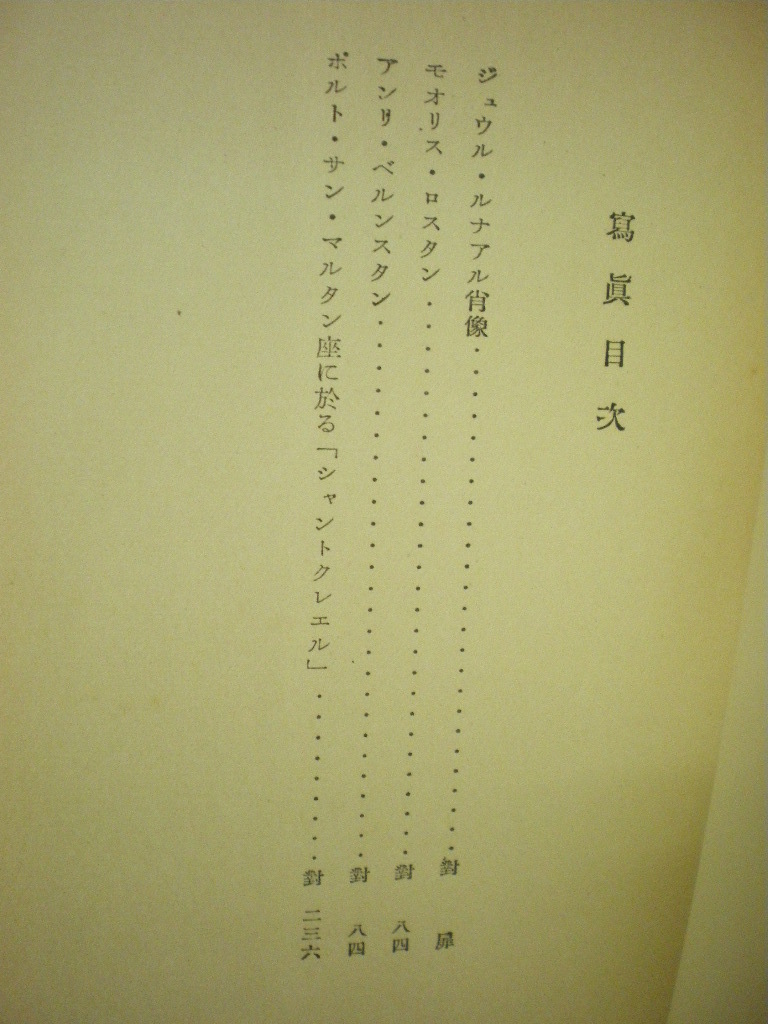 寫眞目次
ジュウル・ルナアル肖像・・・・・・・・・・・・・・・・・・・・・・・・對 扉
モオリス・ロスタン・・・・・・・・・・・・・・・・・・・・・・・・・・對 八四
アンリ・ベルンスタン・・・・・・・・・・・・・・・・・・・・・・・・・對 八四
ポルト・サン・マルタン座に於る「シャントクレエル」・・・・・・・・・對 二三六